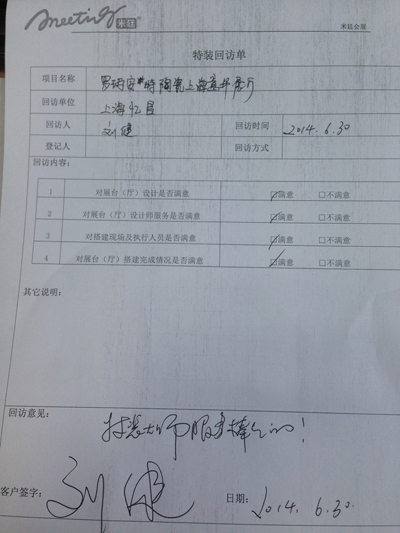 meeting 米廷
米廷会展
特装回访单
项目名称
回访单位 上海
回访人 刘健 回访时间 2014.6.30
登记人 回访方式
回访内容:
1 对展台（厅）设计是否满意 ☑满意 □不满意
2 对展台（厅）设计师服务是否满意 ☑满意 □不满意
3 对搭建现场及执行人员是否满意 ☑满意 □不满意
4 对展台（厅）搭建完成情况是否满意 ☑满意 □不满意
其它说明：
回访意见： 服务棒棒的！
客户签字： 刘健 日期： 2014.6.30.